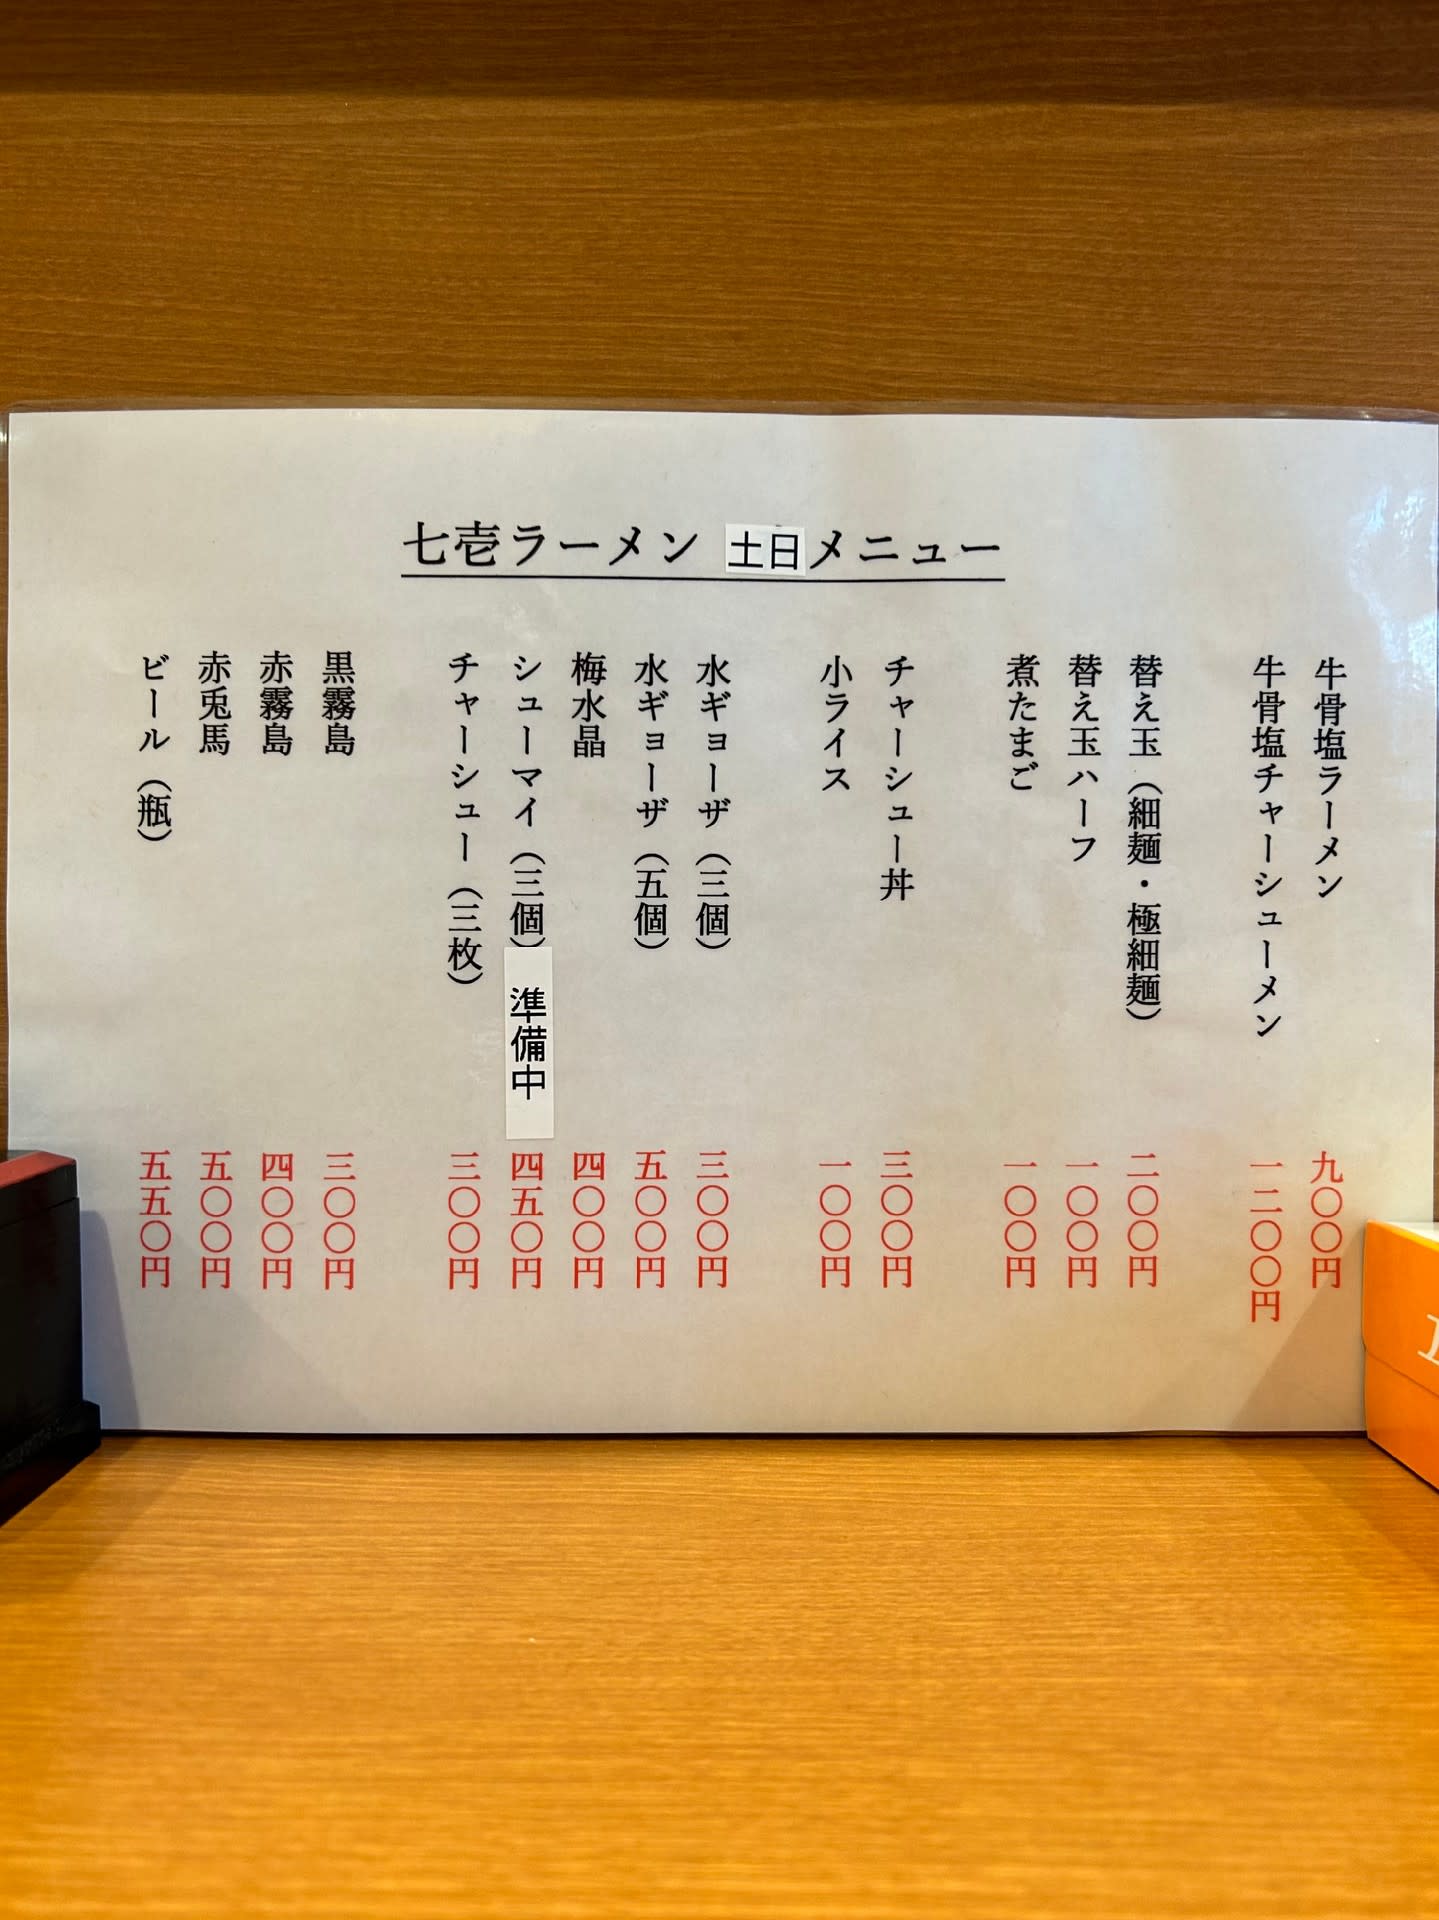 七壱ラーメン 土日メニュー
牛骨塩ラーメン 九〇〇円
牛骨塩チャーシューメン 一二〇〇円
替え玉（細麺・極細麺） 二〇〇円
替え玉ハーフ 一〇〇円
煮たまご 一〇〇円
チャーシュー丼 三〇〇円
小ライス 一〇〇円
水ギョーザ（三個） 三〇〇円
水ギョーザ（五個） 五〇〇円
梅水晶 四〇〇円
シューマイ（三個） 準備中 四五〇円
チャーシュー（三枚） 三〇〇円
黒霧島 三〇〇円
赤霧島 四〇〇円
赤兎馬 五〇〇円
ビール（瓶） 五五〇円